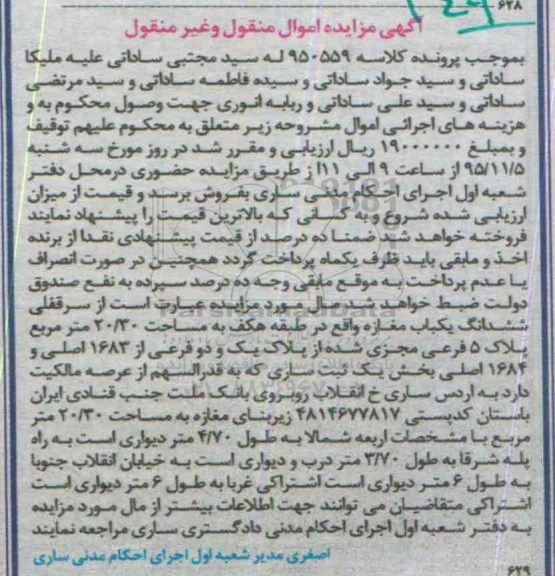 ۶۲۸
آگهی مزایده اموال منقول وغیر منقول
بموجب پرونده کلاسه ۹۵۰۵۵۹ له سید مجتبی ساداتی علیه ملیکا
ساداتی و سید جواد ساداتی و سیده فاطمه ساداتی و سید مرتضی
ساداتی و سید علی ساداتی و ربابه انوری جهت وصول محکوم به و
هزینه های اجرائی اموال مشروحه زیر متعلق به محکوم علیهم توقیف
و بمبلغ ۱۹۰۰۰۰۰۰ ریال ارزیابی و مقرر شد در روز مورخ سه شنبه
۹۵/۱۱/۵ از ساعت ۹ الی ۱۱ از طریق مزایده حضوری درمحل دفتر
شعبه اول اجرای احکام مدنی ساری بفروش برسد و قیمت از میزان
ارزیابی شده شروع و به کسانی که بالاترین قیمت را پیشنهاد نمایند
فروخته خواهد شد ضمنا ده درصد از قیمت پیشنهادی نقدا از برنده
اخذ و مابقی باید ظرف یکماه پرداخت گردد همچنین در صورت انصراف
یا عدم پرداخت به موقع مابقی وجه ده درصد سپرده به نفع صندوق
دولت ضبط خواهد شد مال مورد مزایده عبارت است از سرقفلی
ششدانگ یکباب مغازه واقع در طبقه هکف به مساحت ۲۰/۳۰ متر مربع
پلاک ۵ فرعی مجزی شده از پلاک یک و دو فرعی از ۱۶۸۳ اصلی و
۱۶۸۴ اصلی بخش یک ثبت ساری که به قدرالسهم از عرصه مالکیت
دارد به آردس ساری خ انقلاب روبروی بانک ملت جنب قنادی ایران
باستان کدپستی ۴۸۱۴۶۷۷۸۱۷ زیربنای مغازه به مساحت ۲۰/۳۰ متر
مربع با مشخصات اربعه شمالا به طول ۴/۷۰ متر دیواری است به راه
پله شرقا به طول ۳/۷۰ متر درب و دیواری است به خیابان انقلاب جنوبا
به طول ۶ متر دیواری است اشتراکی غربا به طول ۶ متر دیواری است
اشتراکی متقاضیان می توانند جهت اطلاعات بیشتر از مال مورد مزایده
به دفتر شعبه اول اجرای احکام مدنی دادگستری ساری مراجعه نمایند
اصغری مدیر شعبه اول اجرای احکام مدنی ساری
۶۲۹